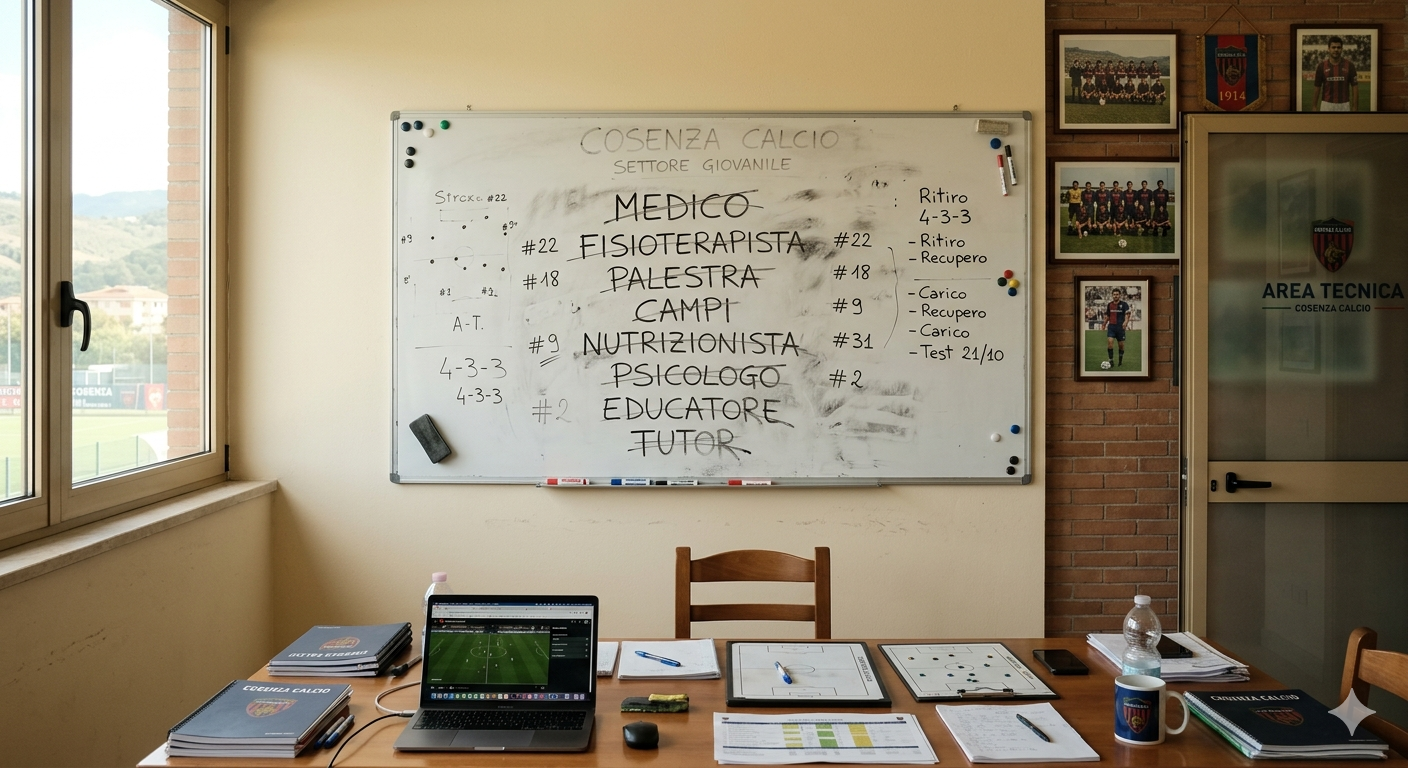 COSENZA CALCIO
SETTORE GIOVANILE
#22
#9
A-T.
4-3-3
4-3-3
MEDICO
#22 FISIOTERAPISTA #22
#18 PALESTRA #18
CAMPI #9
#9 NUTRIZIONISTA #31
PSICOLOGO #2
#2 EDUCATORE
TUTOR
Ritiro
4-3-3
- Ritiro
- Recupero
- Carico
- Recupero
- Carico
- Test 21/10
1914
AREA TECNICA
COSENZA CALCIO
COSENZA CALCIO